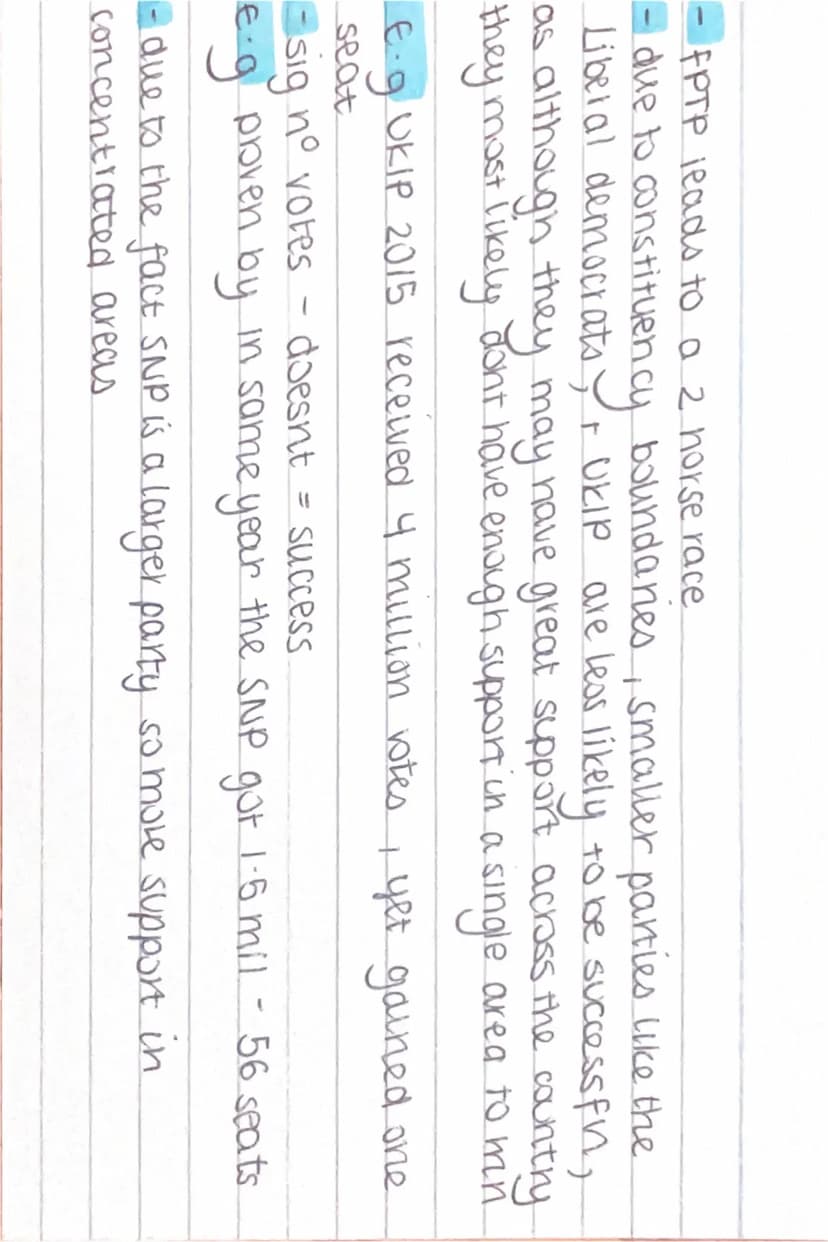 - FPTP leads to a 2 horse race
- due to constituency boundaries, smaller parties like the
Liberal democrats, + UKIP are less likely to be successful,
as although they may have great support across the country
they most likely dont have enough support in a single area to win
E.g UKIP 2015 received 4 million votes, yet gained one
seat
- sig nº votes - doesnt = success
E.g proven by in same year the SNP got 1.5 mil - 56 seats
- due to the fact SNP is a larger party so more support in
concentrated areas